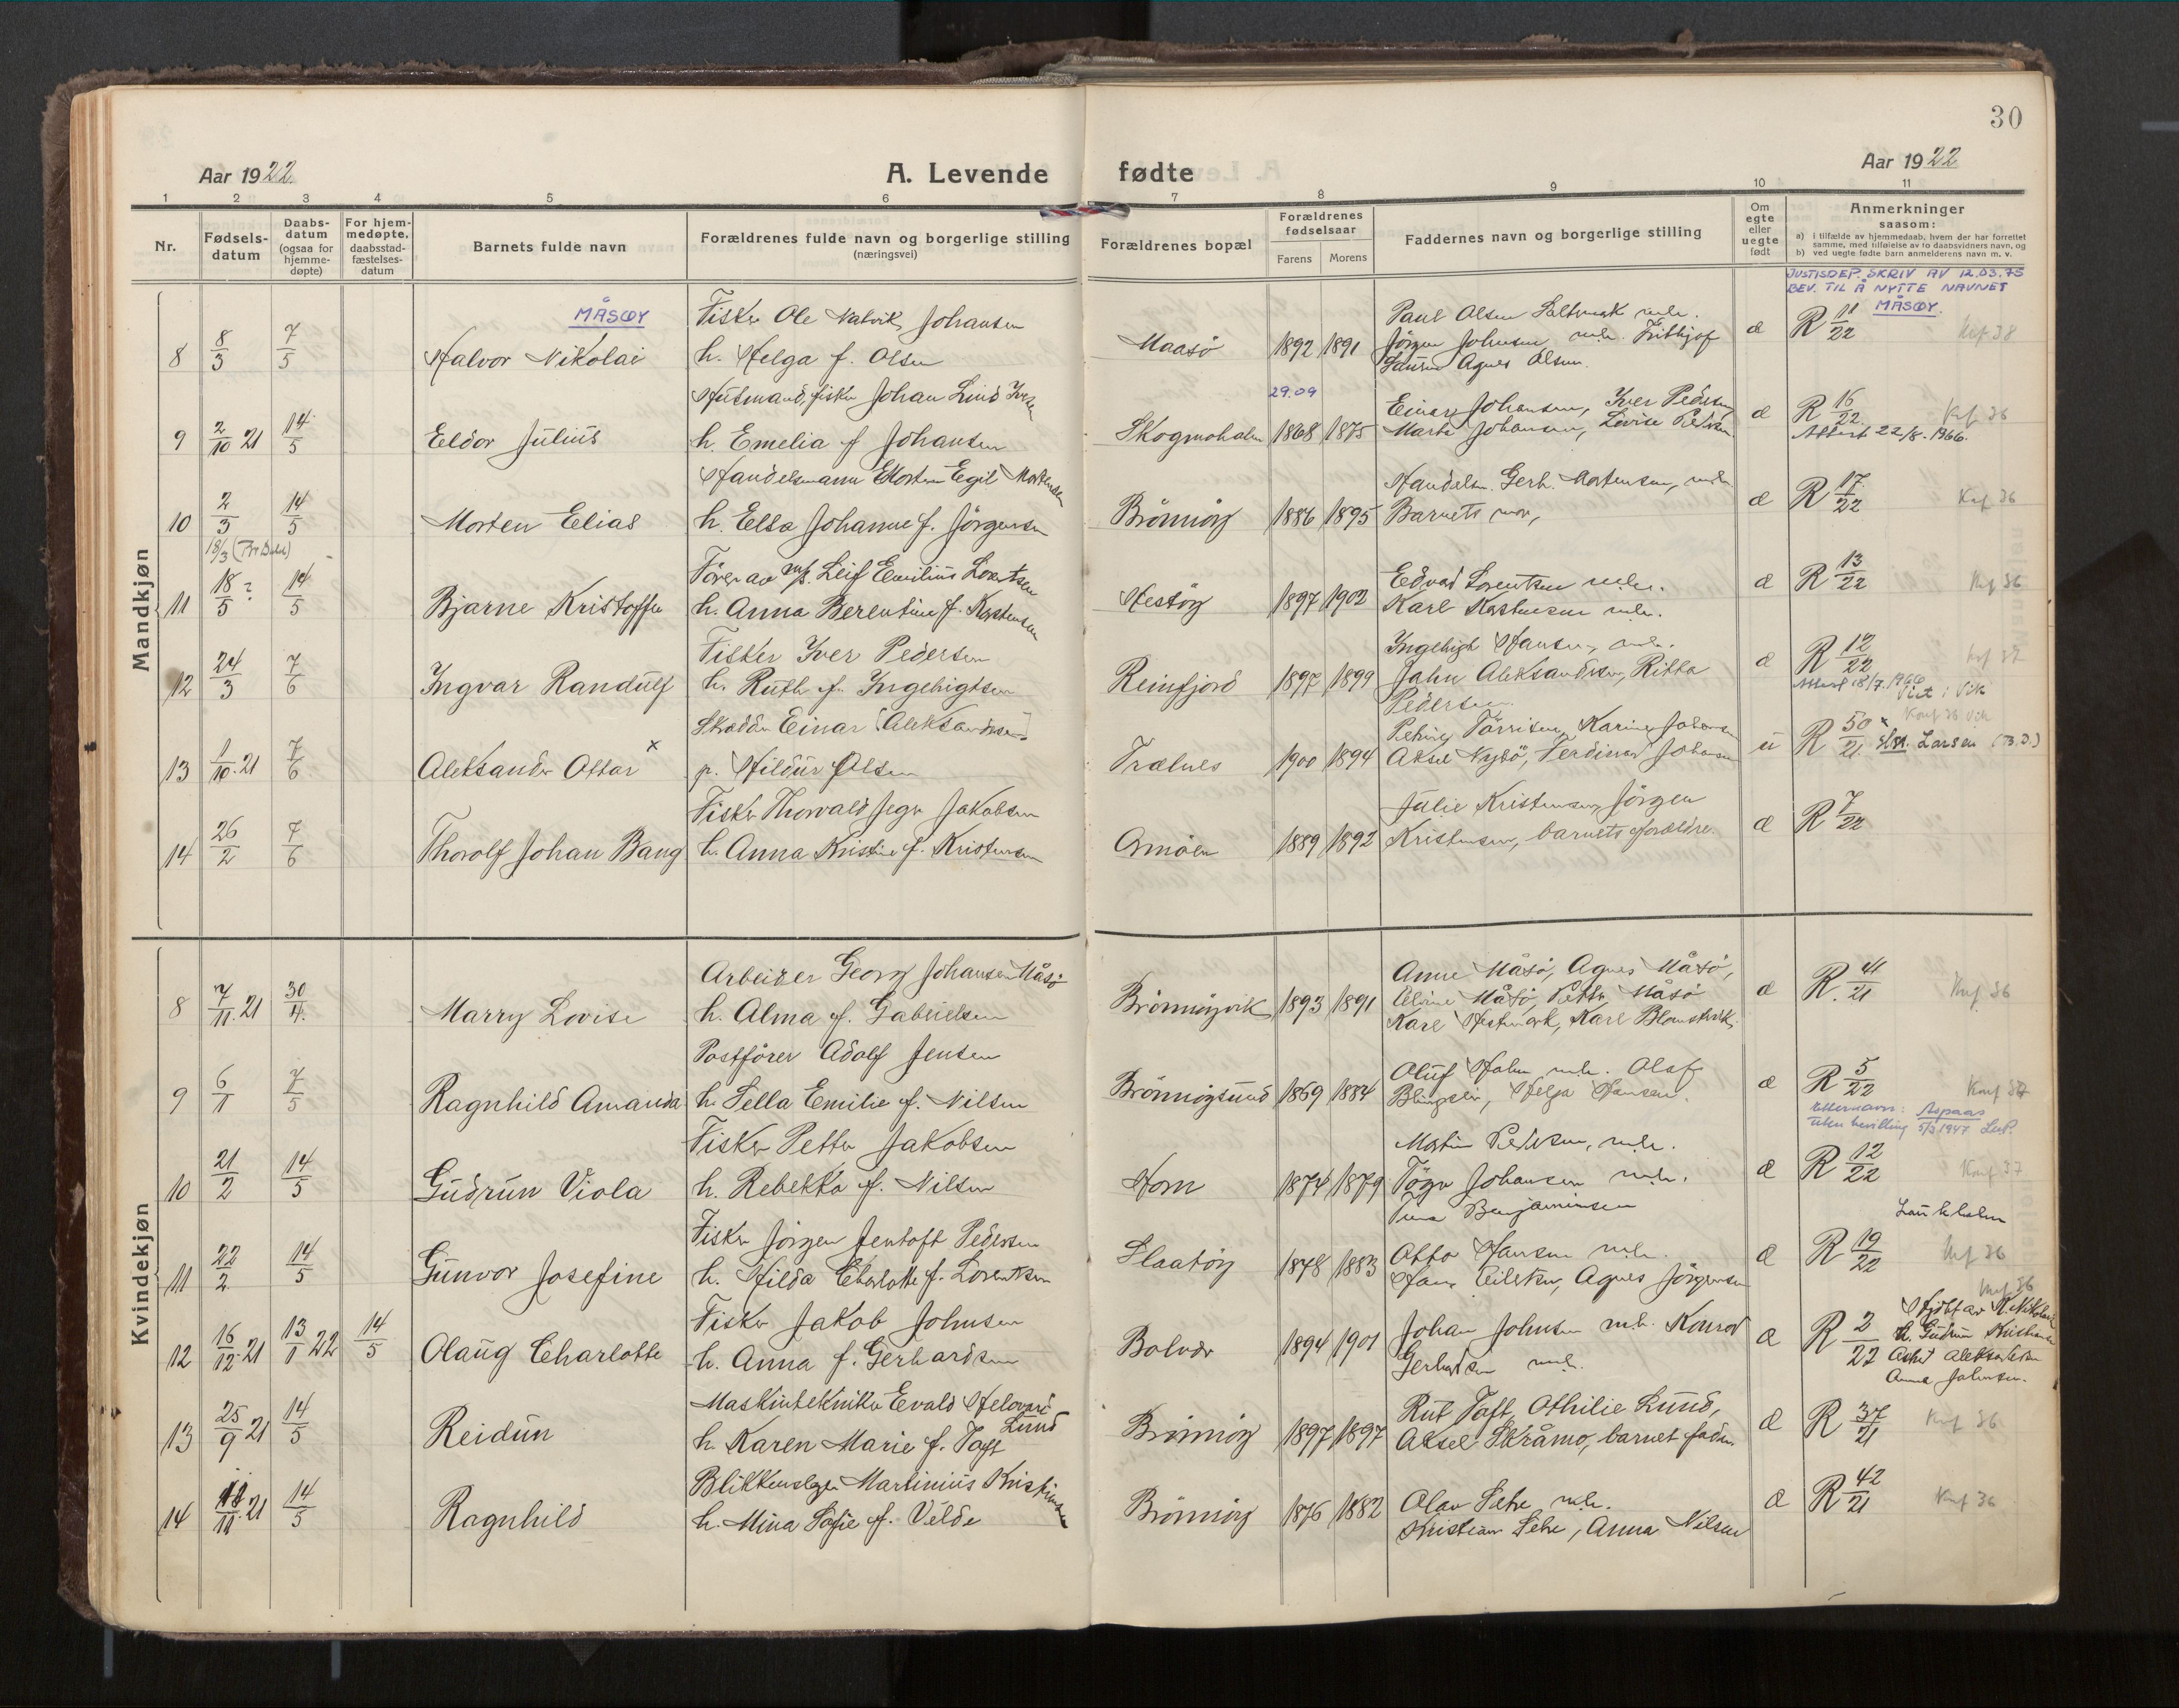 30
Aar 1922.
A. Levende fødte
Aar 1922
1 2 3 4 5 6 7 8 9 10 11
Nr.
Fødsels-datum
Daabs-datum (ogsaa for hjemme-døpte)
For hjem-medøpte, daabsstad-fæstelses-datum
Barnets fulde navn
Forældrenes fulde navn og borgerlige stilling (næringsvei)
Forældrenes bopæl
Forældrenes fødselsaar
Farens Morens
Faddernes navn og borgerlige stilling
Om egte eller uegte født
Anmerkninger saasom:
a) i tilfælde av hjemmedaab, hvem der har forrettet samme, med tilføielse av to daabsvidners navn, og
b) ved uegte fødte barn anmelderens navn m. v.
JUSTISDEP. SKRIV AV 12.03.75
BEV. TIL Å NYTTE NAVNET
MÅSØY.
Mandkjøn
MÅSØY
Fisker Ole Nalvik Johansen
Paul Olsen Saltmak m.h.
8 8/3 7/5 Halvor Nikolai h. Helga f. Olsen Maasö 1892 1891 Jörgen Johnsen m.h. Frithjof æ R 11/22 Knf 38
Agnes Olsen.
Husmand, fisker Johan Lind Iversen
29.09
Einar Johansen, Iver Pedersen
9 2/10 21 14/5 Eldor Julius h. Emelia f Johansen Skogmoholm 1868 1875 Marta Johansen, Lovise Pedersen æ R 16/22 Knf 36
Attest 22/8. 1966.
Handelsmann Morten Egil Mortensen
Handelsm. Gerh. Mortensen, m.h.
10 2/3 14/5 Morten Elias h. Elsa Johanne f. Jörgensen Brönnöy 1886 1895 Barnets mor, æ R 17/22 Knf 36
18/3
Förer av m/s. Leif Emilius Lorentsen
Edvard Lorentsen m.h.
11 18/5 ? 14/5 Bjarne Kristoffer h. Anna Berentine f. Karstensen Hestöy 1897 1902 Karl Karstensen m.h. æ R 13/22 Knf 36
Fisker Iver Pedersen
Ingebrigt Hansen, m.h.
12 24/3 7/6 Ingvar Randulf h. Ruth f. Ingebrigtsen Reinfjord 1897 1899 John Aleksandersen, Rikka æ R 12/22 Knf 37
Pedersen
Attest 18/7. 1966
Viet i Vik
Skrædder Einar [Aleksandersen]
Petrine Törrisen, Karine Johansen
Konf 36 Vik
13 1/10. 21 7/6 Aleksander Ottar x p. Hildur Olsen Trælnes 1900 1894 Aksel Nysö, Ferdinand Johansen u R 50/21. x Larsen (B.D.)
Fisker Thorvald Johan Jakobsen
Julie Kristensen, Jörgen
14 26/2 7/6 Thorolf Johan Bang h. Anna Kristine f. Kristensen Omöen 1889 1892 Kristensen, barnets forældre. æ R 7/22
Kvindekjøn
Arbeider Georg Johansen Måsö
Anne Måsö, Agnes Måsö,
8 7/11. 21 30/4. Marry Lovise h. Alma f. Gabrielsen Brönnöyvik 1893 1891 Elvine Måsö, Petter Måsö æ R. 41/21 Knf 36
Karl Hestmark, Karl Blomstervik.
Postförer Adolf Jensen
Oluf Holm m.h. Olaf
9 6/1 7/5 Ragnhild Amanda h. Sella Emilie f. Nilsen Brönnöysund 1869 1884 Helga Hansen. æ R 5/22 Konf 37
Etternavn: Aspaas
uten bevilling 5/3 1947
Fisker Petter Jakobsen
Martin Pedersen, m.h.
10 21/2 14/5 Gudrun Viola h. Rebekka f. Nilsen Horn 1874 1879 Töger Johansen m.h. æ R 12/22 Konf 37
Tina Benjaminsen
Laukholm
Fisker Jörgen Jentoft Pedersen
11 22/2 14/5 Gunvor Josefine h. Hilda Charlotte f. Lorentsen Slaatöy 1878 1883 Otto Hansen m.h. æ R 19/22 Knf 36
Hans Eilertsen, Agnes Jörgensen
Knf 36
Fisker Jakob Johnsen
Hjdbt av K. Nikolaisen
12 16/12. 21 13/1 22 14/5 Olaug Charlotte h. Anna f. Gerhardsen Bolvær 1894 1901 Johan Johnsen m.h. Konrad æ R 2/22 h. Gudrun Kristiansen
Gerhardsen m.h.
Anna Johnsen.
Maskintekniker Evald Helovard Lund
Rut Toft, Othilie Lund,
13 25/9 21 14/5 Reidun h. Karen Marie f. Toft Brönnöy 1897 1897 Aksel Skråmo, barnet fader. æ R 37/21 Knf 36
Blikkenslager Martinius Kristiansen
14 18/11. 21 14/5 Ragnhild h. Mina Sofie f. Velde Brönnöy 1876 1882 Olav Sehe m.h. æ R 42/21 Knf 36
Kristian Sehe, Anna Nilsen